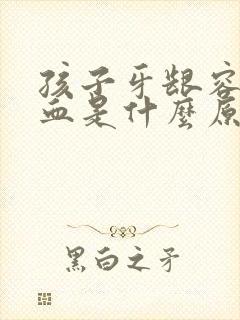 孩子牙龈容
血是什麼原
黑白之矛